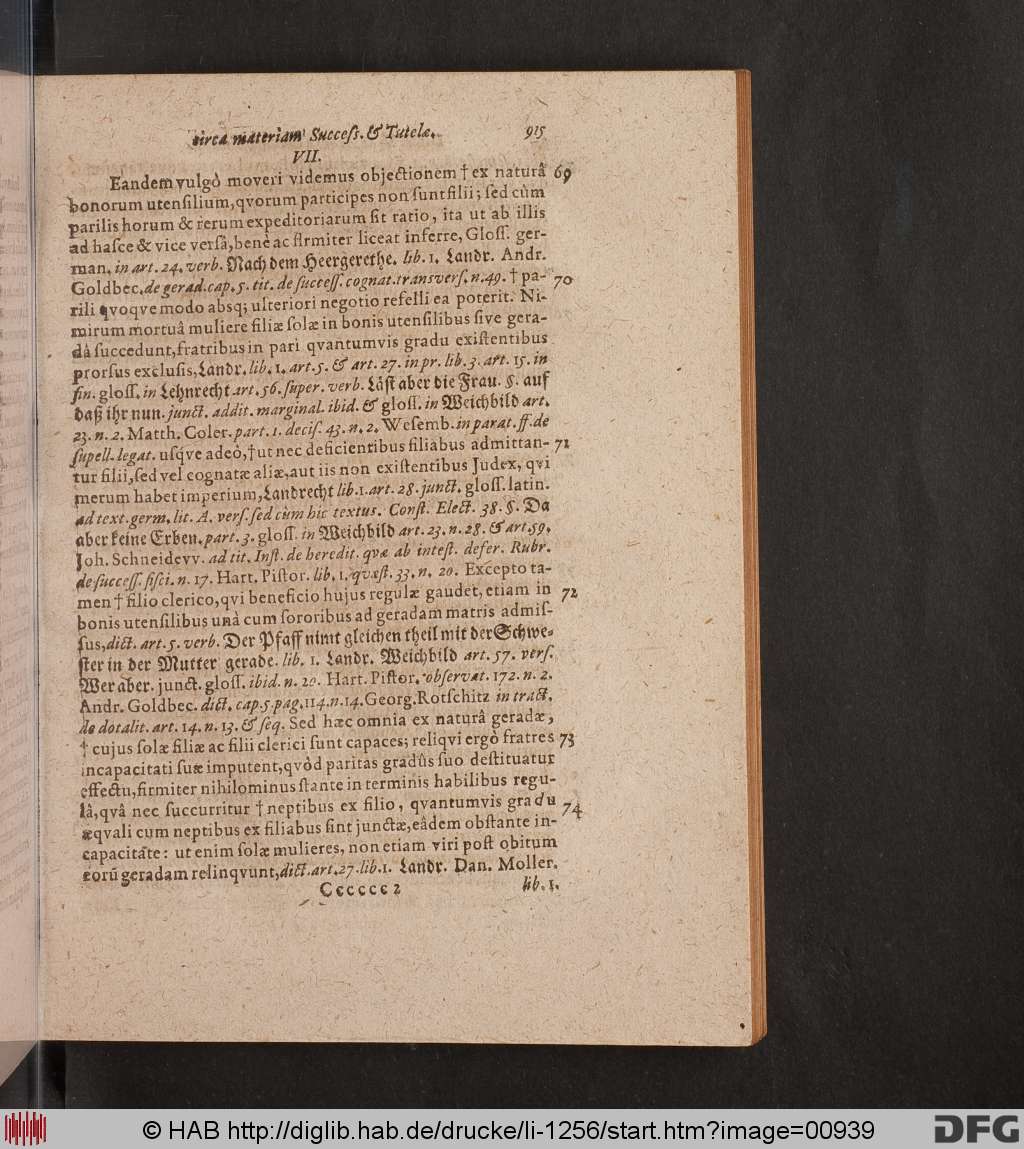 circa materiam Success. & Tutelæ. 915
VII.
Eandem vulgò moveri videmus objectionem † ex naturâ 69
bonorum utensilium, qvorum participes non sunt filii; sed cùm
parilis horum & rerum expeditoriarum sit ratio, ita ut ab illis
ad hasce & vice versâ, benè ac firmiter liceat inferre, Gloss. ger-
man. in art. 24. verb. Nach dem Heergerethe. lib. 1. Landr. Andr.
Goldbec. de gerad. cap. 5. tit. de success. cognat. transvers. n. 49. † pa- 70
rili qvoqve modo absq; ulteriori negotio refelli ea poterit. Ni-
mirum mortuâ muliere filiæ solæ in bonis utensilibus sive gera-
dâ succedunt, fratribus in pari qvantumvis gradu existentibus
prorsus exclusis, Landr. lib. 1. art. 5. & art. 27. in pr. lib. 3. art. 15. in
fin. gloss. in Lehnrecht art. 56. super. verb. Läst aber die Frau. §. auf
daß ihr nun. junct. addit. marginal. ibid. & gloss. in Weichbild art.
23. n. 2. Matth. Coler. part. 1. decis. 43. n. 2. Wesemb. in parat. ff. de
supell. legat. usqve adeò, † ut nec deficientibus filiabus admittan- 71
tur filii, sed vel cognatæ aliæ, aut iis non existentibus Judex, qvi
merum habet imperium, Landrecht lib. 1. art. 28. junct. gloss. latin.
ad text. germ. lit. A. vers. sed cùm hic textus. Const. Elect. 38. §. Da
aber keine Erben. part. 3. gloss. in Weichbild art. 23. n. 28. & art. 59.
Joh. Schneidevv. ad tit. Inst. de heredit. qvæ ab intest. defer. Rubr.
de success. fisci. n. 17. Hart. Pistor. lib. 1. qvæst. 33. n. 20. Excepto ta-
men † filio clerico, qvi beneficio hujus regulæ gaudet, etiam in 72
bonis utensilibus unà cum sororibus ad geradam matris admis-
sus, dict. art. 5. verb. Der Pfaff nimt gleichen theil mit der Schwe-
ster in der Mutter gerade. lib. 1. Landr. Weichbild art. 57. vers.
Wer aber. junct. gloss. ibid. n. 20. Hart. Pistor. observat. 172. n. 2.
Andr. Goldbec. dict. cap. 5 pag. 114. n. 14. Georg. Rotschitz in tract.
de dotalit. art. 14. n. 13. & seq. Sed hæc omnia ex naturâ geradæ,
† cujus solæ filiæ ac filii clerici sunt capaces; reliqvi ergò fratres 73
incapacitati suæ imputent, qvòd paritas gradûs suo destituatur
effectu, firmiter nihilominus stante in terminis habilibus regu-
lâ, qvâ nec succurritur † neptibus ex filio, qvantumvis gradu 74
æqvali cum neptibus ex filiabus sint junctæ, eâdem obstante in-
capacitate: ut enim solæ mulieres, non etiam viri post obitum
eorũ geradam relinqvunt, dict. art. 27. lib. 1. Landr. Dan. Moller.
Cccccc 2 lib. 1.
© HAB http://diglib.hab.de/drucke/li-1256/start.htm?image=00939
DFG